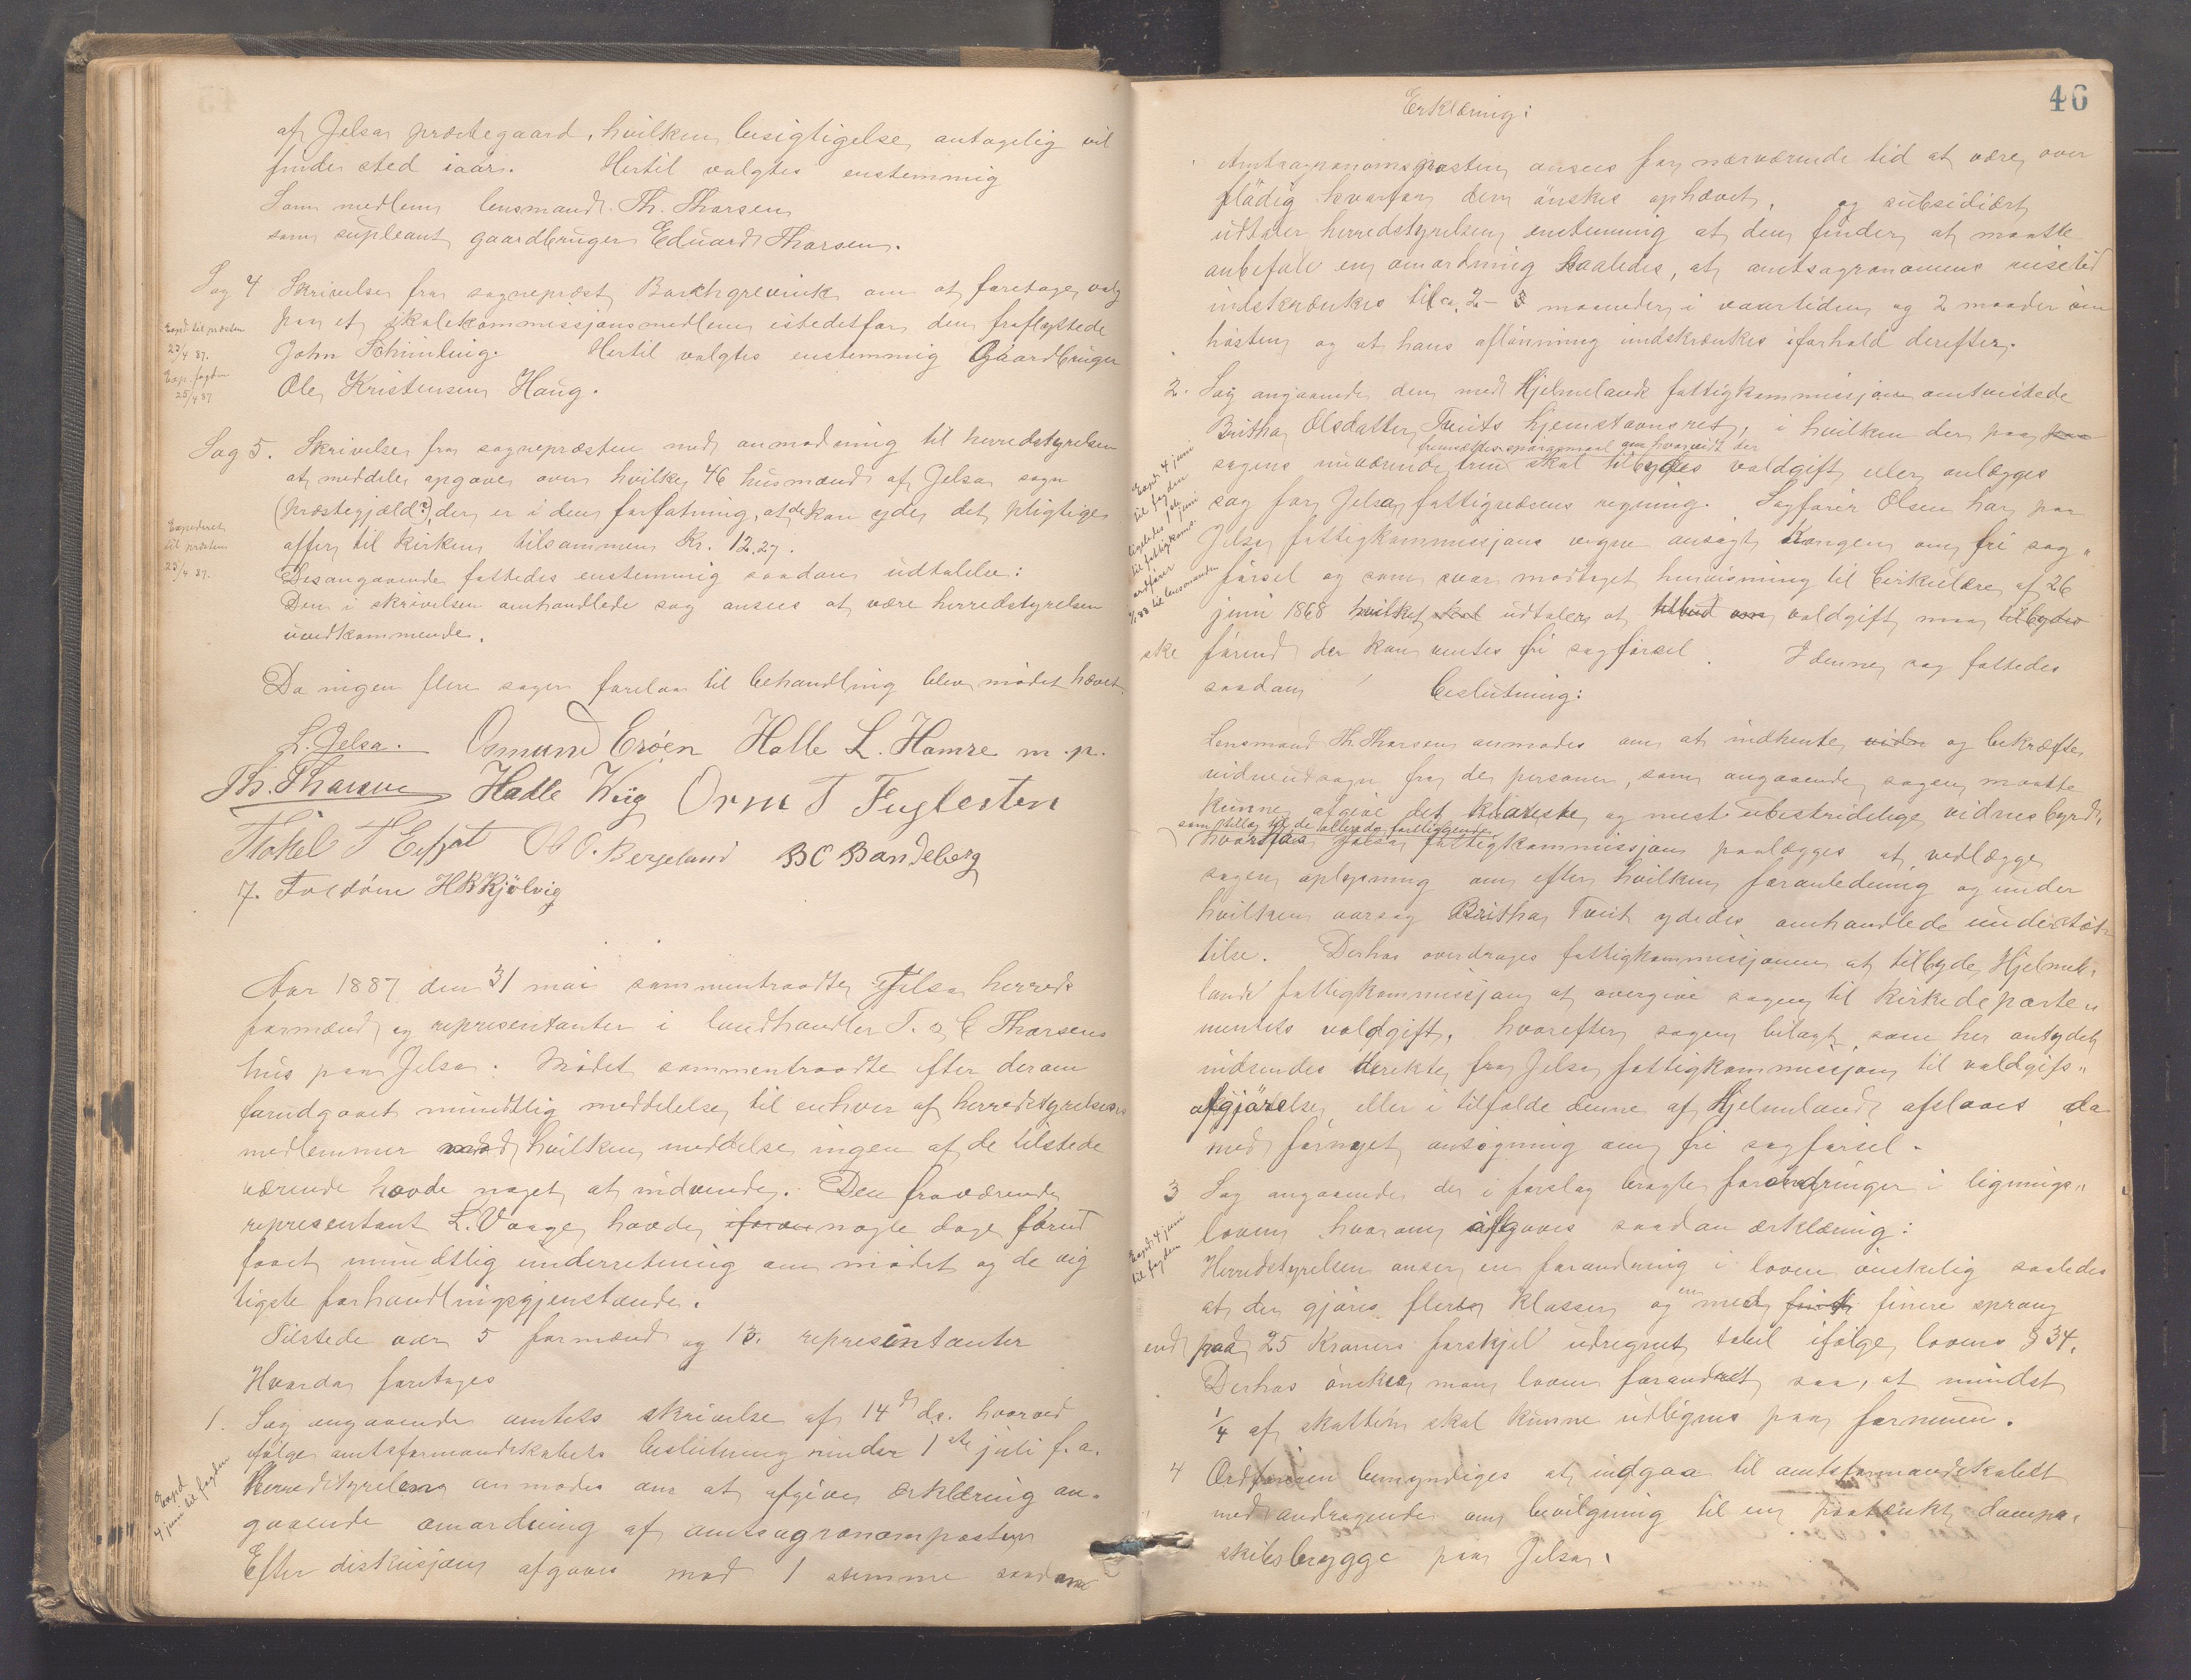 af Jelsa præstegaard, hvilken besigtigelse antagelig vil
finde sted iaar. Hertil valgtes enstemmig
Som medlem lensmand Th. Tharsen
som supleant gaardbruger Eduard Tharsen.
Sag 4 Skrivelse fra sognepræst Barkhgrevink om at foretage valg
Exped. til præsten
23/4 87.
Exp. fogden
25/4 87
paa et skolekommissjonsmedlem istedetfor den fraflyttede
John Schimling. Hertil valgtes enstemmig Gaardbruger
Ole Kristensen Haug.
Sag 5. Skrivelse fra sognepræsten med anmodning til herredstyrelsen
at meddele opgave over hvilke 46 husmænd af Jelsa sogn
(præstegjæld?), der er i den forfatning, at de kan yde det pligtige
Expederet
til præsten
23/4 87.
offer til kirken tilsammen Kr. 12.27.
Desangaaende fattedes enstemmig saadan udtalelse:
Den i skrivelsen omhandlede sag ansees at være herredstyrelsen
uvedkommende.
Da ingen flere sager forelaa til behandling blev mødet hævet
L. Jelsa. Osmund Erøen Halle L. Hamre m.p.
Th. Tharsen Hadle Wiig Orm T Fuglesten
O O. Bergeland BC Bandeberg
7. Foldøen HKKjölvig
Aar 1887 den 31 mai sammentraadte Jelsa herreds
formænd og representanter i landhandler T. & C Tharsens
hus paa Jelsa. Mødet sammentraadte efter derom
forudgaaet mundtlig meddelelse til enhver af herredstyrelsens
medlemmer mod hvilken meddelse ingen af de tilstede
værende havde noget at indvende. Den fraværende
representant L. Vaage havde nogle dage førud
faaet mundtlig underretning om mødet og de vig
tigste forhandlingsgjenstande.
Tilstede var 5 formænd og 13. representanter
Hvorda foretoges
1. Sag angaaende amtets skrivelse af 14de ds. hvorved
ifølge amtsformandskabets beslutning under 1ste juli f.a.
Exped
4 juni til fogden
Herredstyrelsen anmodes om at afgive erklæring an-
gaaende omordning af amtsagronomposten
Efter diskusjon afgaves mod 1 stemme saadan
46
Erklæring:
Amtsagronomsposten ansees for nærværende tid at være over
flödig hvorfor den önskes ophævet, og subsidiært
udtaler herredstyrelsen enstemmig at den finder at maatte
anbefale en omordning saaledes, at amtsagronomens reisetid
indskrænkes til ca. 2-3 maaneder i vaartiden og 2 maader om
høsten og at hans aflønning indskrænkes iforhold derefter.
2. Sag angaaende den med Hjelmeland fattigkommissjon omtvistede
Britha Olsdatter Tveits hjemstavnsret, i hvilken der paa
fremsættes spørgsmaal om hvorvidt der
sagens nuværende trin skal tilbydes voldgift eller anlægges
Exped. 4 juni
til fogden
ligeledes 1ste juni
til fattigkoms.
ordfører
sag for Jelsa fattigvæsens regning. Sagfører Olsen har paa
Jelsa fattigkommissjons vegne ansøgt Kongen om fri sag"
førsel og som svar modtaget henvisning til Cirkulære af 26
juni 1868 hvilket skal udtaler at tilbud om voldgift maa tilbydes
ske førend der kan ventes fri sagførsel. I denne sag fattedes
saadan beslutning:
Lensmand Th. Tharsen anmodes om at indhente vidn og bekræfte
vidneudsagn fra de personer, som angaaende sagen maatte
kunne afgive det klareste og mest ubestridelige vidnesbyrd,
som tillæg til de allerede foreliggende.
hvorhos Jelsa fattigkommissjon paalægges at vedlægge
sagen oplysning om efter hvilken foranledning og under
hvilken aarsag Britha Tveit ydedes omhandlede understøt-
telse. Derhos overdrages fattigkommissjonen at tilbyde Hjelme-
lands fattigkommissjon at overgive sagen til Kirkedeparte"
mentets voldgift, hvorefter sagen bilagt som her antydet
indsendes direkte fra Jelsa fattigkommissjon til voldgifs"
afgjörelse eller i tilfælde denne af Hjelmeland afslaaes da
med førnyet ansøgning om fri sagførsel.
3 Sag angaaende de i forslag bragte forandringer i lignings"
Exped. 4 juni
til fogden
loven hvorom afgaves saadan ærklæring:
Herredstyrelsen anser en forandring i loven önskelig saaledes
at der gjøres flere klasser og en med finere sprang
end paa 25 Kroners forskjel udregnet tabel ifølge lovens § 34.
Derhos önsker man loven forandret saa, at mindst
1/4 af skatten skal kunne udlignes paa formuen.
4 Ordføreren bemyndiges at indgaa til amtsformandskabet
med andragende om bevilgning til en paatænkt damp-
skibsbrygge paa Jelsa.